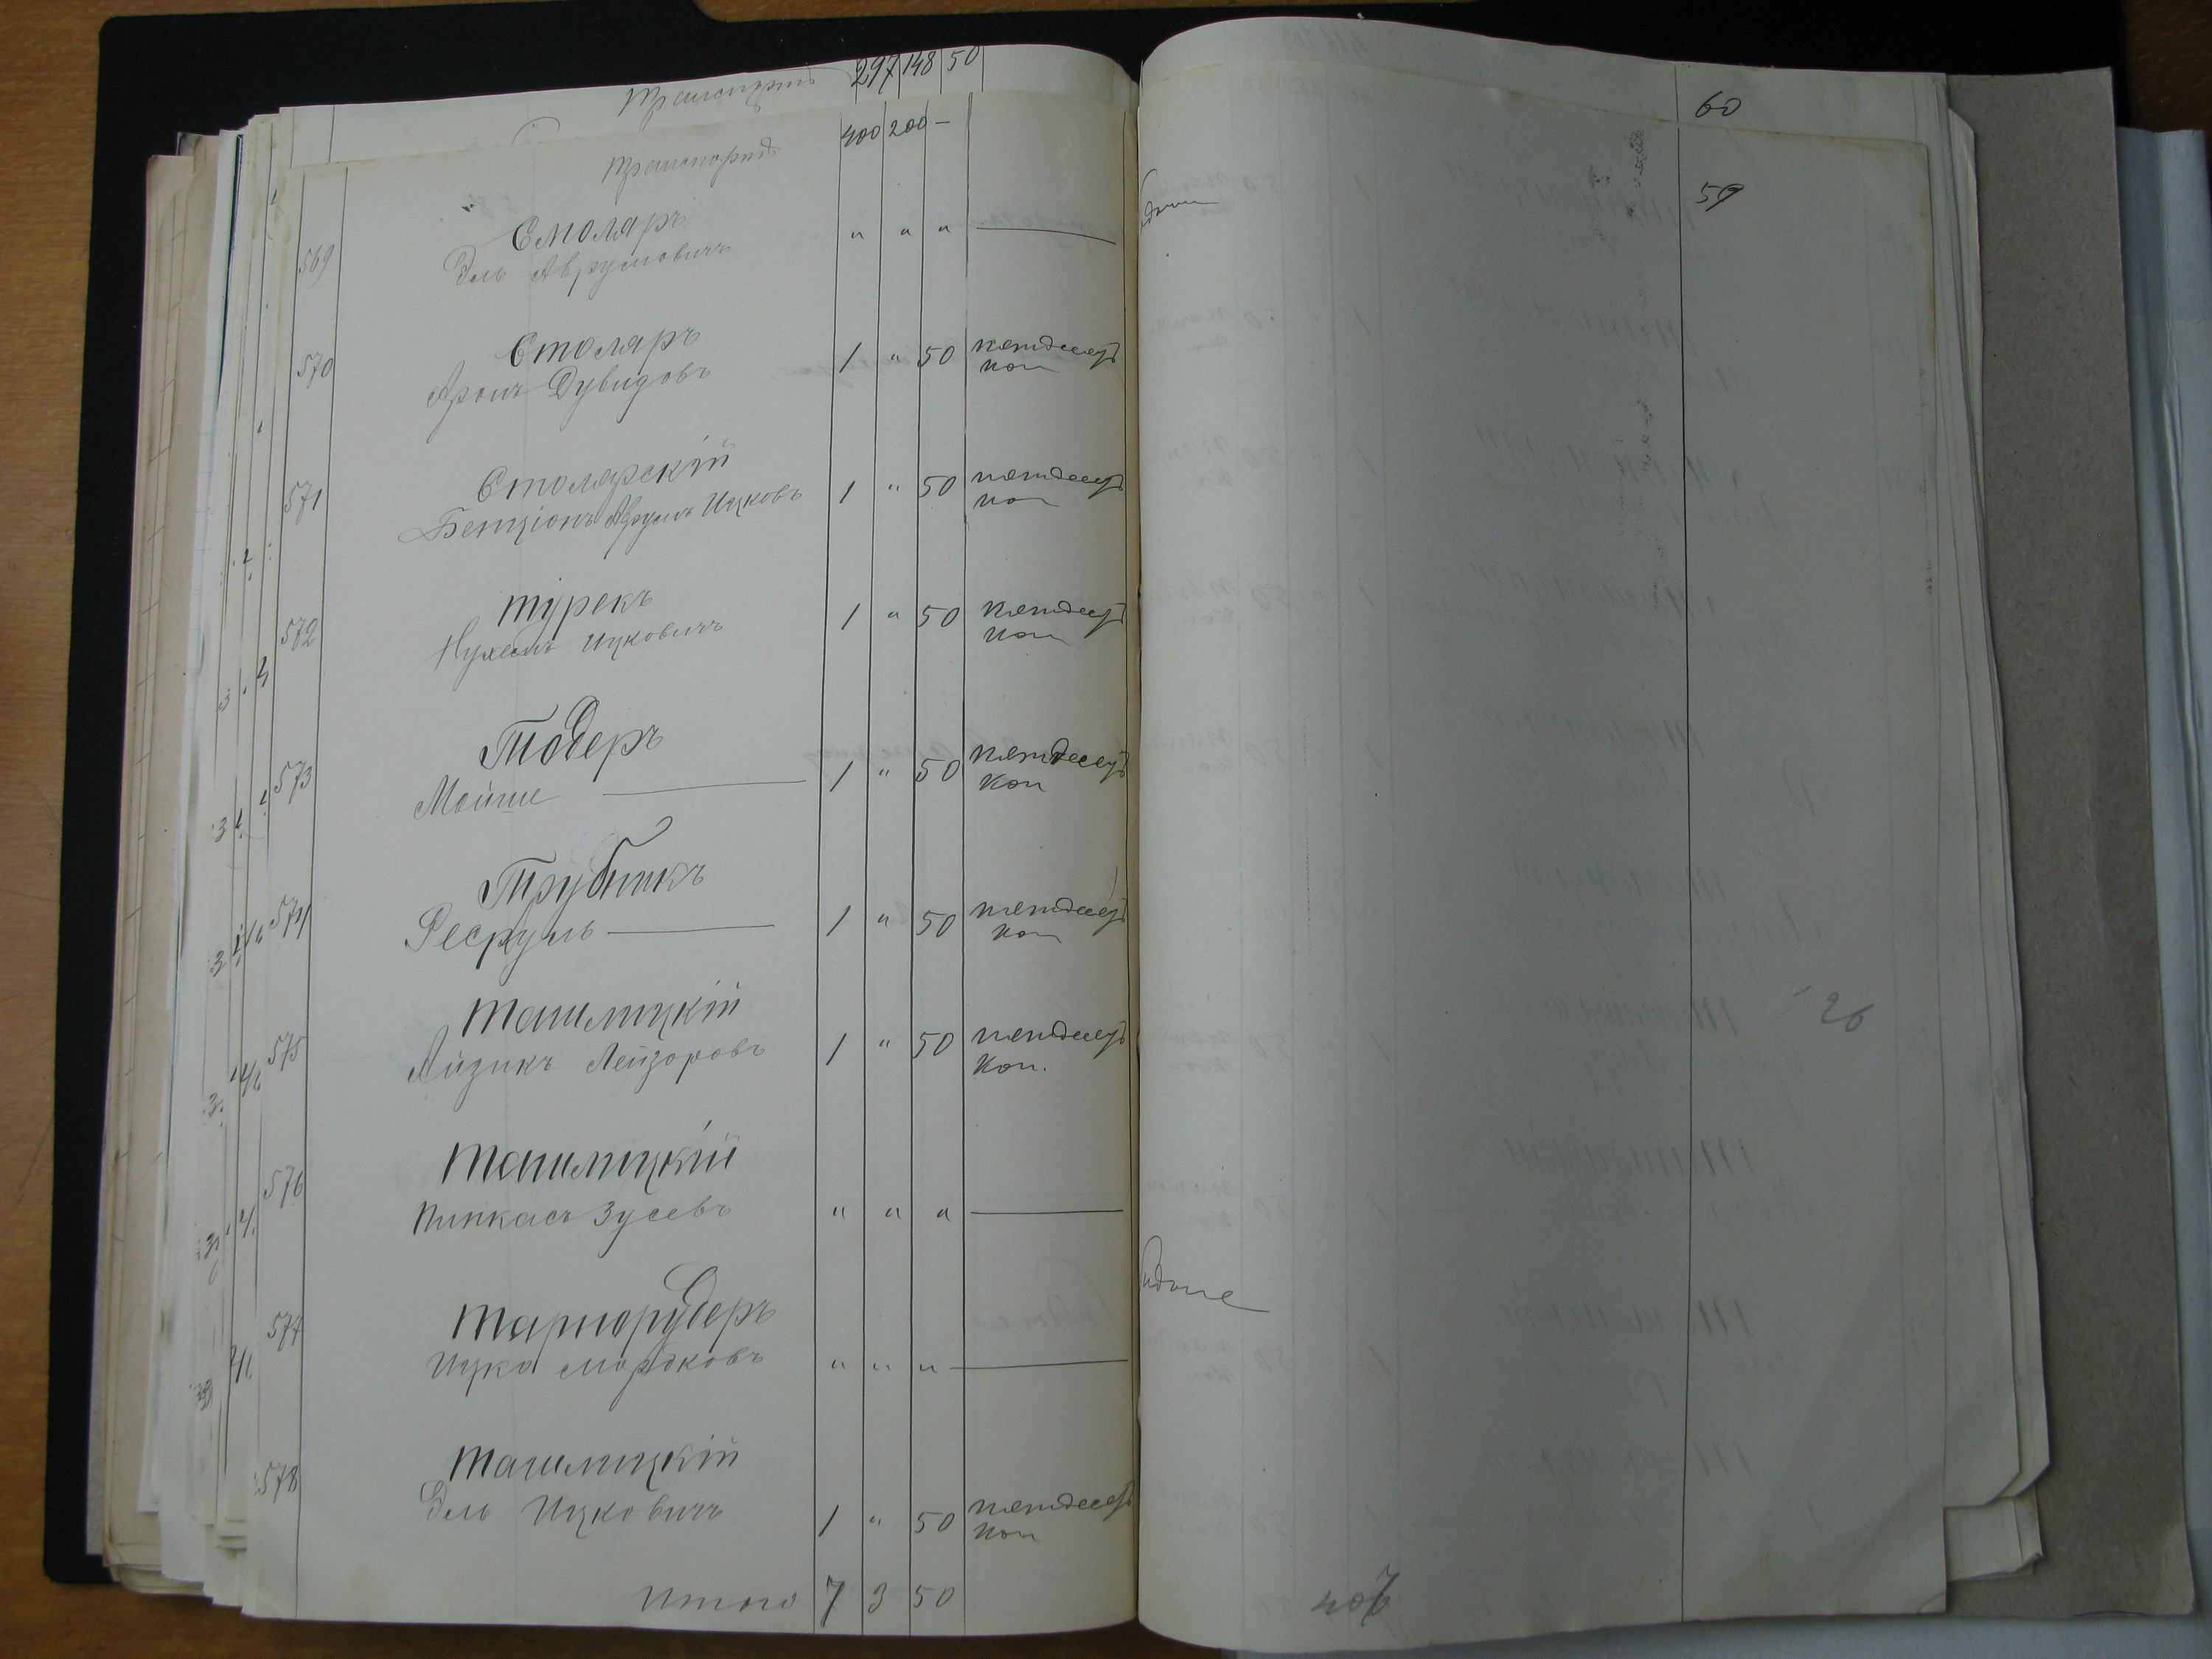 Транспортъ 297 148 50
60
Транспортъ 400 200 —
59
569 Столяръ " " "
Эль Аврумовичъ
570 Столяръ 1 " 50 пятдесятъ
Аронъ Дувидовъ коп
571 Столярскій 1 " 50 пятдесятъ
Бенціонъ Аврумъ Ицковъ коп
572 Турекъ 1 " 50 пятдесятъ
Нухемъ Ицковичъ коп
573 Тодеръ 1 " 50 пятдесятъ
Мойше коп
574 Трубникъ 1 " 50 пятдесятъ
коп
575 Ташлицкій 1 " 50 пятдесятъ
Айзикъ Лейзоровъ коп.
26
576 Ташлицкій
Пинкасъ Зусевъ " " "
577 Тарнорудеръ
Ицко Мордковъ " " "
578 Ташлицкій
Эль Ицковичъ 1 " 50 пятдесятъ
коп
Итого 7 3 50
407